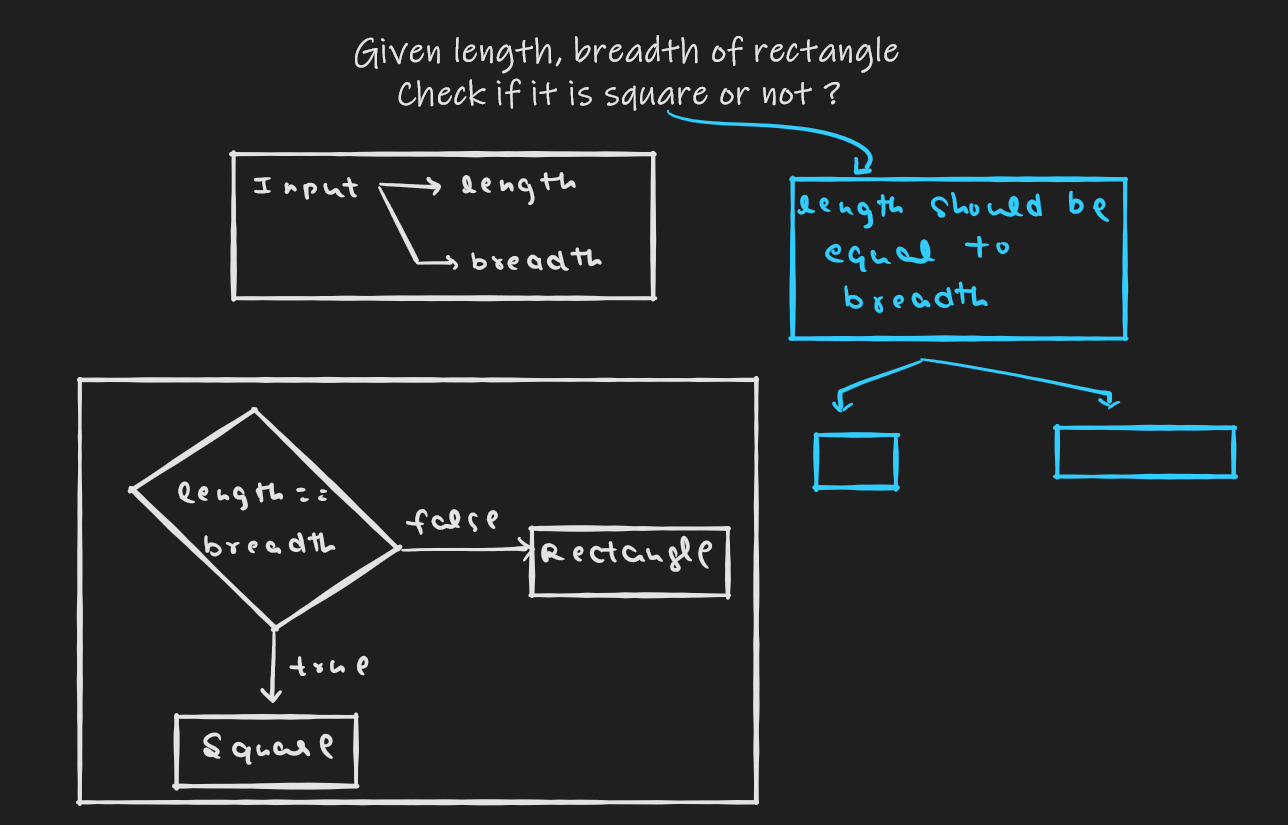 Given length, breadth of rectangle
Check if it is square or not ?
Input
length
breadth
length should be
equal to
breadth
length ==
breadth
false
Rectangle
true
Square